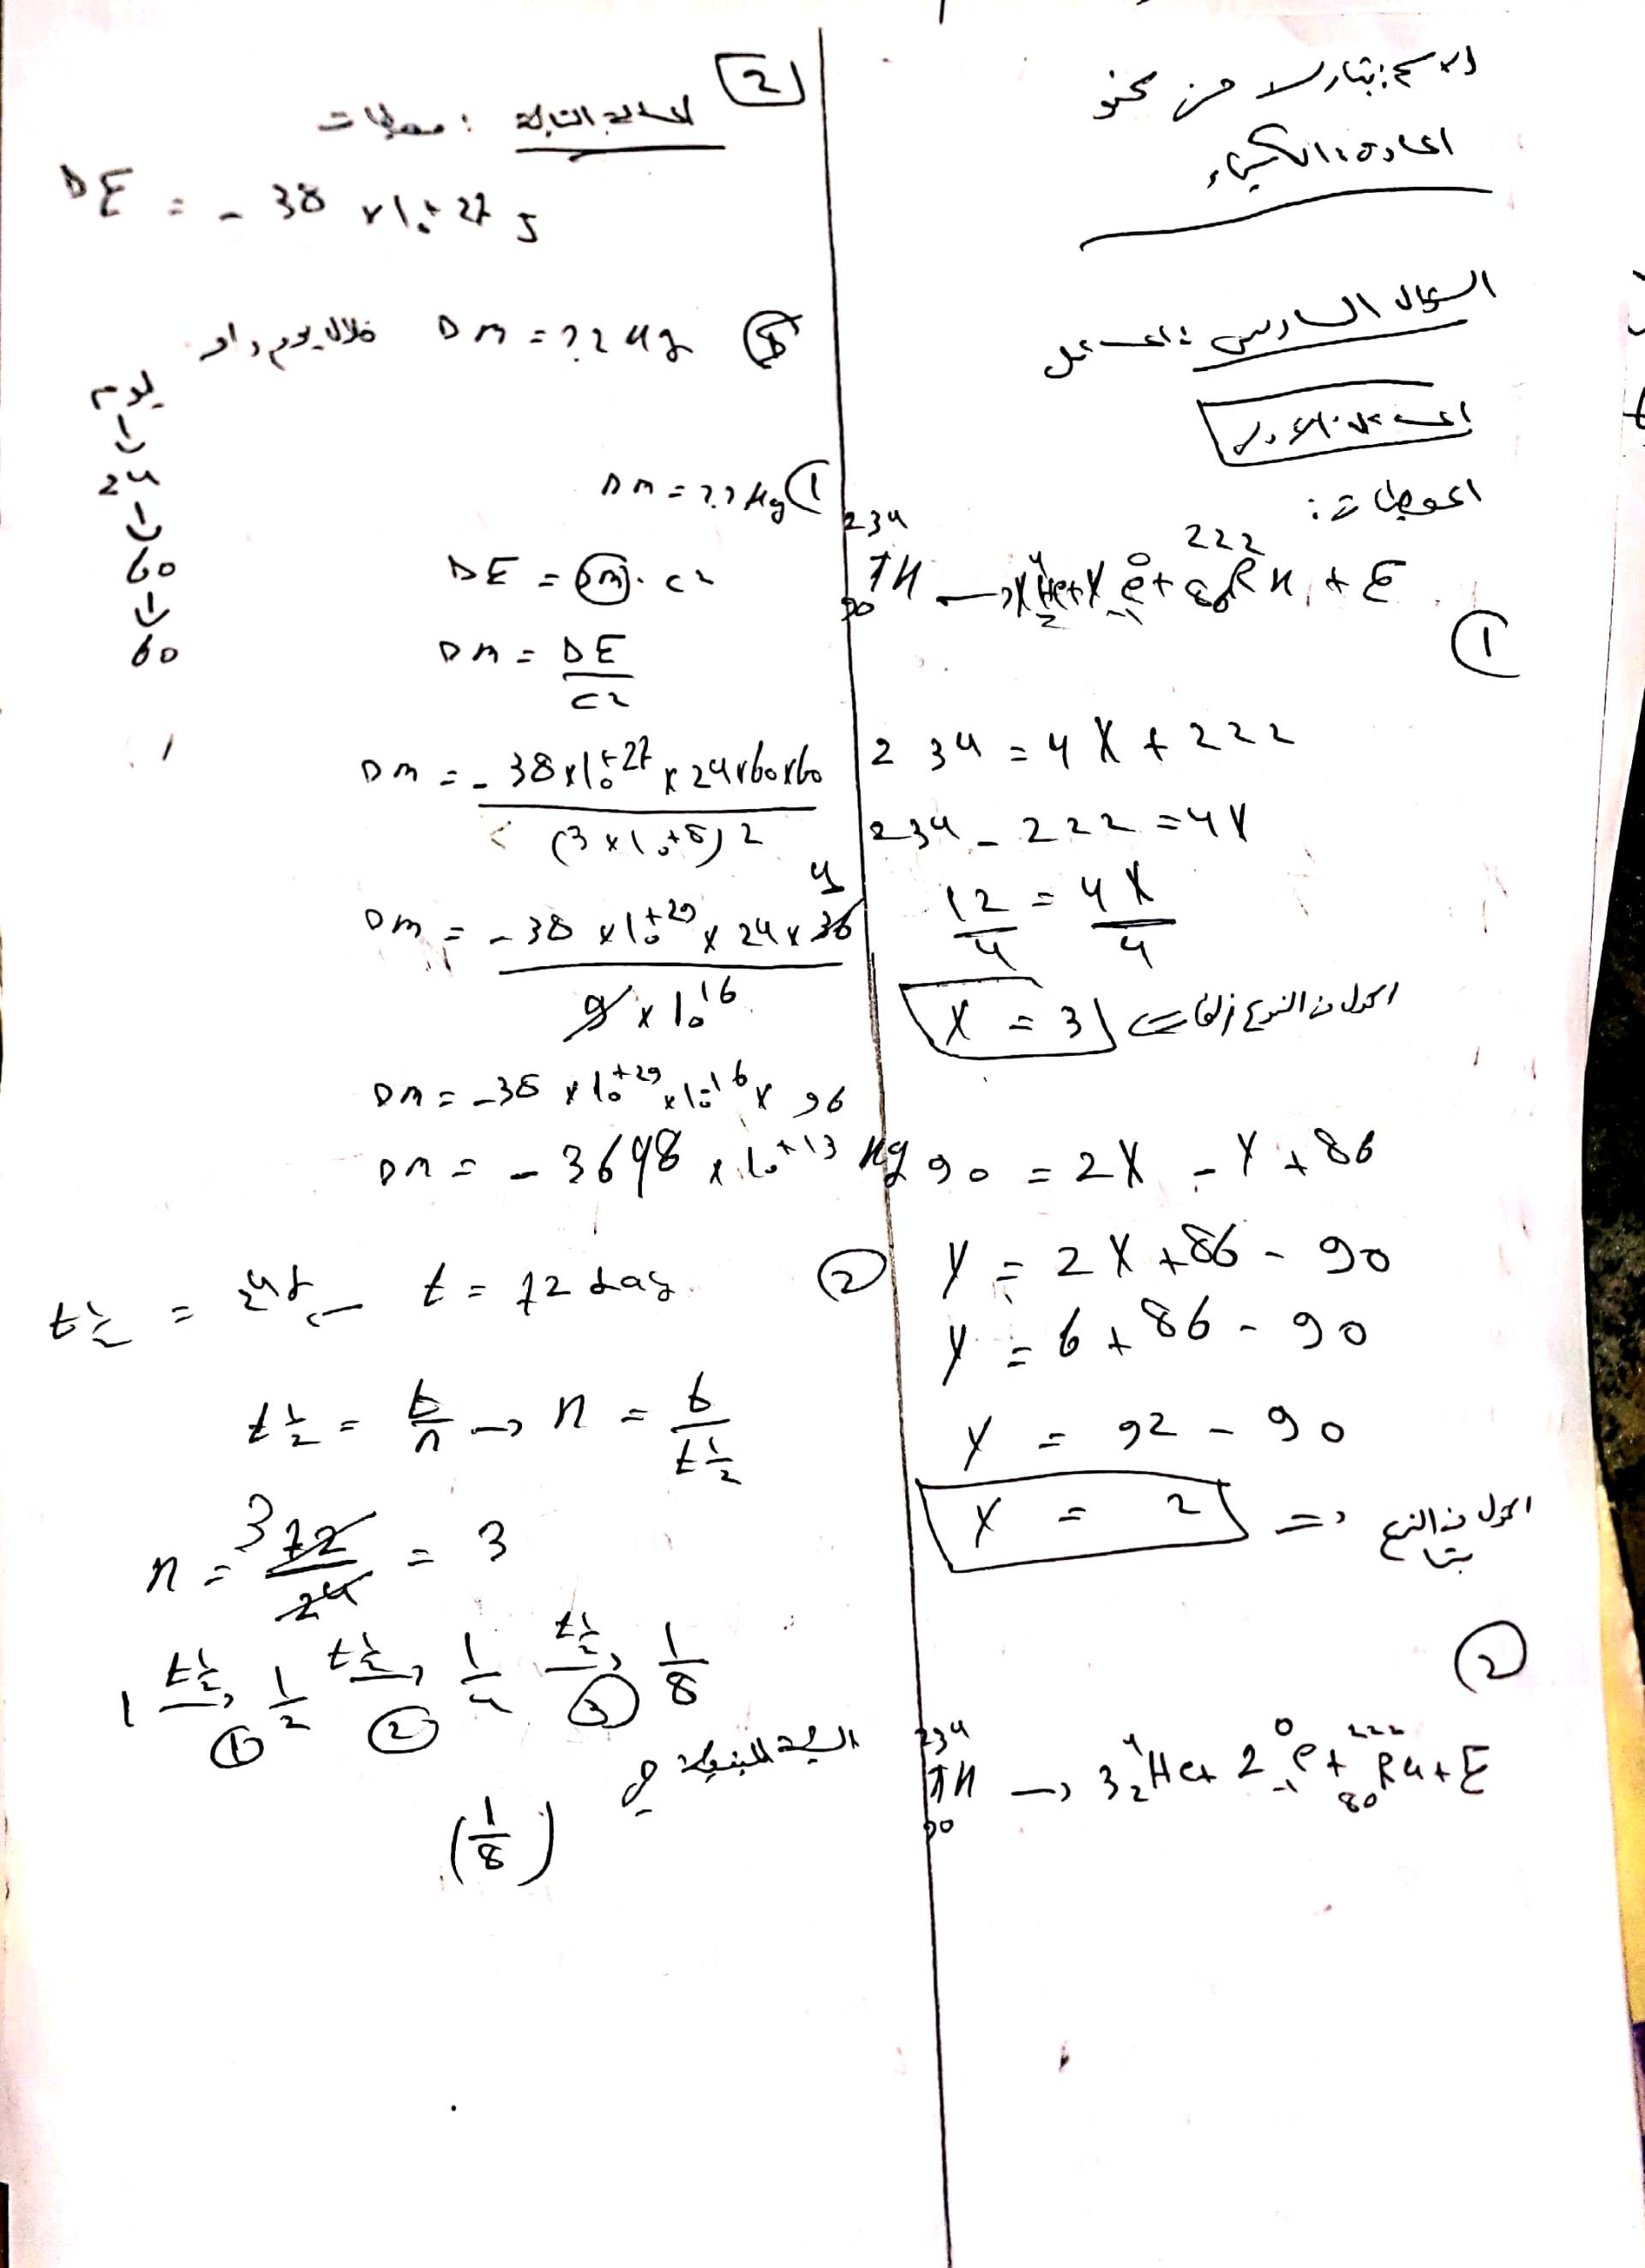 المادة: الكيمياء
السؤال السادس: المسائل
المسألة الأولى
المعطيات:
²³⁴₉₀Th → X ⁴₂He + Y ⁰₋₁e + ²²²₈₆Rn + E
①
234 = 4X + 222
234 - 222 = 4X
12/4 = 4X/4
X = 3 ⇐ التحول من النوع ألفا
90 = 2X - Y + 86
Y = 2X + 86 - 90
Y = 6 + 86 - 90
Y = 92 - 90
Y = 2 ⇐ التحول من النوع بيتا
②
²³⁴₉₀Th → 3 ⁴₂He + 2 ⁰₋₁e + ²²²₈₆Rn + E
2
المسألة الثانية: معطيات
ΔE = - 38 × 10⁺²⁷ J
Δm = ?? kg خلال يوم واحد
يوم
↓
24
↓
60
↓
60
① Δm = ?? kg
ΔE = Δm . c²
Δm = ΔE/c²
Δm = - 38 × 10⁺²⁷ × 24 × 60 × 60 / (3 × 10⁺⁸)²
Δm = - 38 × 10⁺²⁹ × 24 × 36 / 9 × 10¹⁶
4
Δm = - 38 × 10⁺²⁹ × 10⁻¹⁶ × 96
Δm = - 3648 × 10⁺¹³ kg
② t = 72 day
t½ = 24
t½ = t/n → n = t/t½
n = 72/24 = 3
3
1 t½→ 1/2 t½→ 1/4 t½→ 1/8
① ② ③
النسبة المتبقية هي
(1/8)